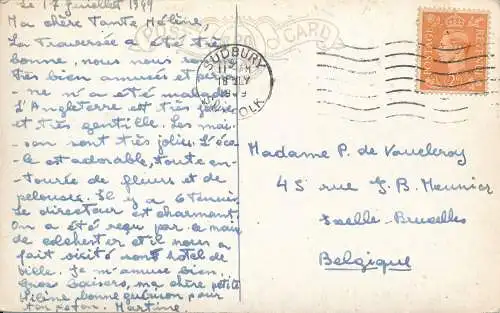 Le 17 Juillet 1949
Ma chère Tante Hélène,
La Traversée a été très
bonne, nous nous
très bien amusés et per-
ne n'a été malade
L'Angleterre est très
et très gentille. Les mai-
son sont très jolies. L'éco-
le est adorable, toute en-
tourée de fleurs et de
pelouses. Il y a 6 tennis
Le directeur est charmant.
On a été reçu par le maire
de colchester et il nous a
fait visité son hôtel de
ville. Je m'amuse bien.
Gros baisers, ma chère petite
Hélène, bonne guérison pour
ton Martine.
POST CARD
SUDBURY
SUFFOLK
POSTAGE
REVENUE
Madame P. de Vaucleroy
45 rue J. B. Meunier
Ixelle-Bruxelles
Belgique